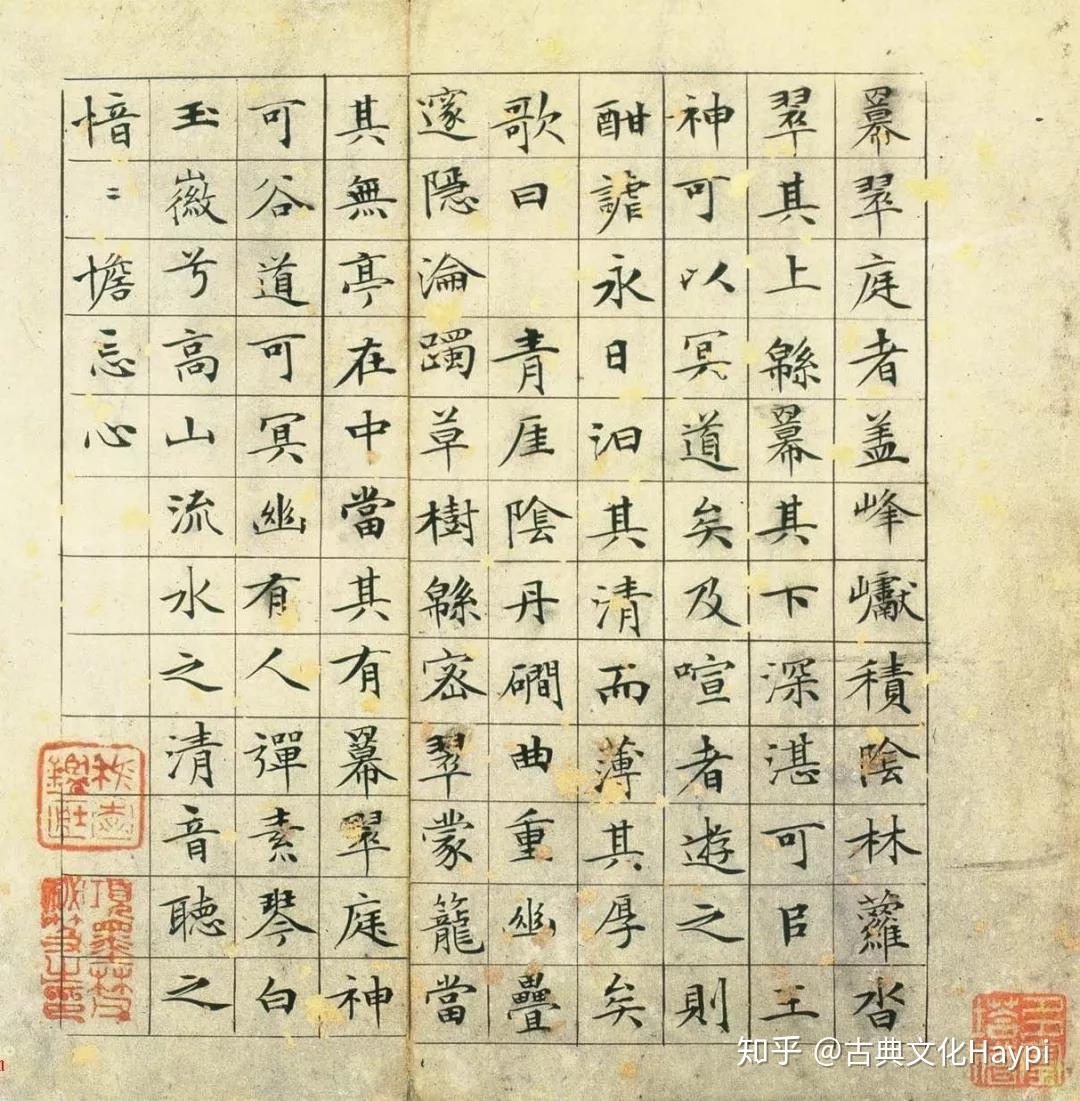 羃翠庭者盖峰巘積陰林蘿沓
翠其上緜羃其下深湛可㠯王
神可以冥道矣及喧者遊之則
酣謔永日汩其清而薄其厚矣
歌曰 青厓陰丹磵曲重幽疊
邃隱淪躅草樹緜密翠蒙籠當
其無亭在中當其有羃翠庭神
可谷道可冥幽有人彈素琴白
玉徽兮高山流水之清音聽之
愔〻憺忘心
項墨林父秘笈之印
知乎 @古典文化Haypi